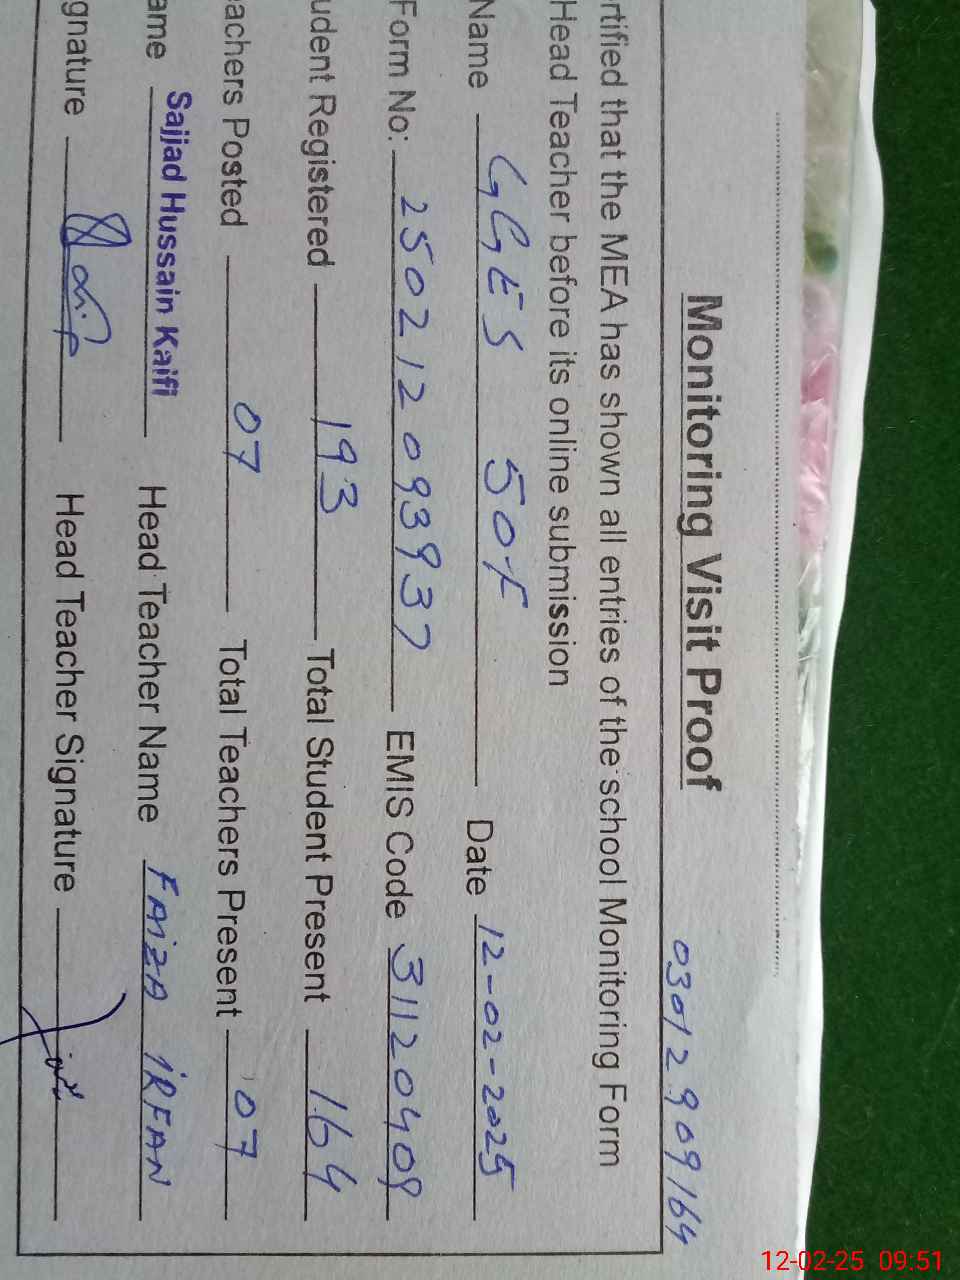 Monitoring Visit Proof
03012909164
rtified that the MEA has shown all entries of the school Monitoring Form
Head Teacher before its online submission
Name GGES 50/F Date 12-02-2025
Form No: 250212093937 EMIS Code 31120409
udent Registered 193 Total Student Present 164
eachers Posted 07 Total Teachers Present 07
ame Sajjad Hussain Kaifi Head Teacher Name FAiZA iRFAN
gnature Head Teacher Signature
12-02-25 09:51